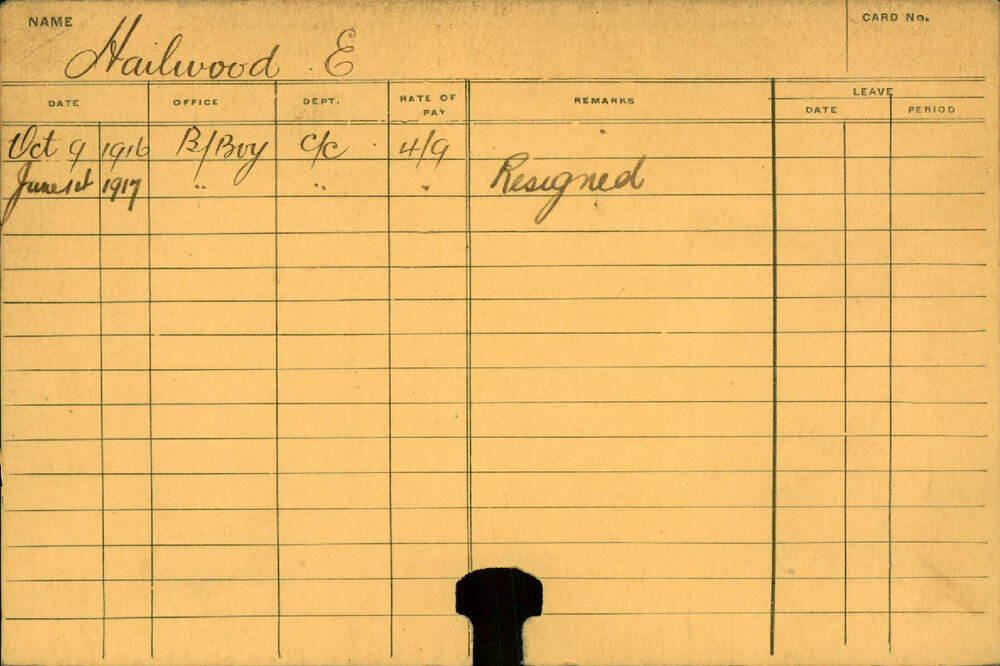 NAME Hailwood E CARD No.
DATE OFFICE DEPT. RATE OF PAY REMARKS LEAVE DATE PERIOD
Oct 9 1916 B/Boy C/C 4/9
June 1st 1917 " " " Resigned